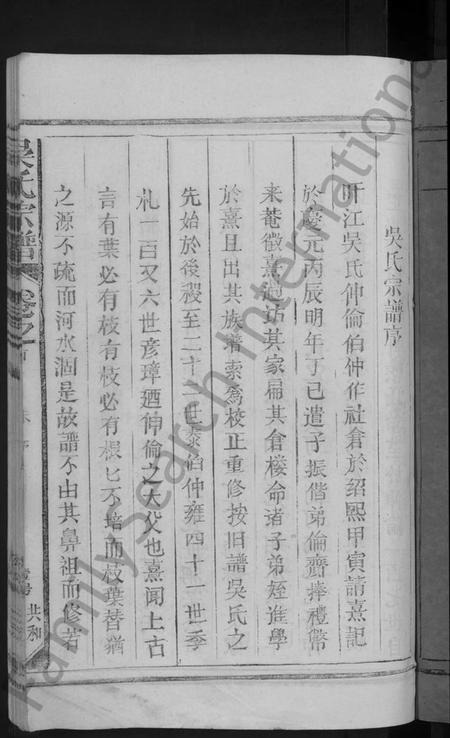 吳氏宗譜序
盱江吳氏伸倫伯仲作社倉於紹熙甲寅請熹記
於慶元丙辰明年丁巳遣子振偕弟倫齎捧禮幣
来菴徵熹起訪其家扁其倉楼命诸子弟姪進學
於熹且出其族譜索為校正重修按旧譜吳氏之
先始於後稷至二十一世泰伯仲雍四十一世季
札一百又六世彦璋廼伸倫之大父也熹聞上古
言有葉必有枝有枝必有根匕不培而枝葉瞀猶
之源不疏而河水涸是故譜不由其鼻祖而修若
吳氏宗譜 卷之首
共和
FamilySearch International